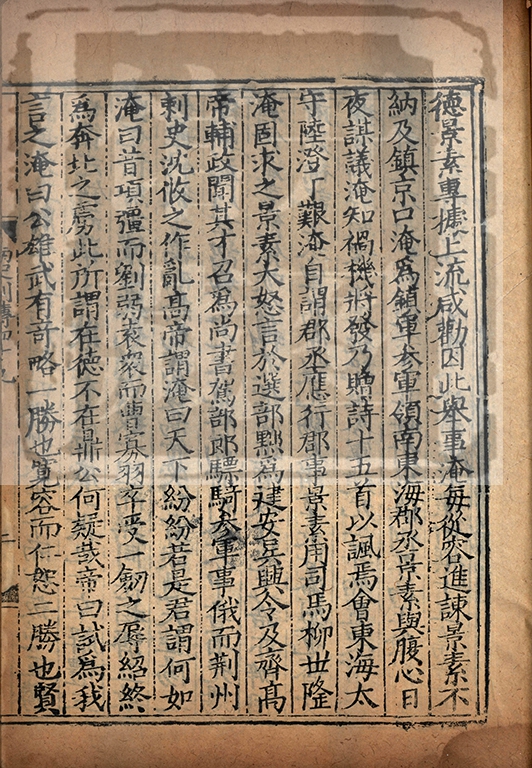 德景素專據上流咸勸因此舉事淹每從容進諫景素不
納及鎮京口淹爲鎮軍叅軍領南東海郡丞景素與腹心日
夜謀議淹知禍機將發乃贈詩十五首以諷焉會東海太
守陸澄丁艱淹自謂郡丞應行郡事景素用司馬柳世隆
淹固求之景素大怒言於選部黜爲建安吳興令及齊髙
帝輔政聞其才召爲尚書駕部郎驃騎叅軍事俄而荆州
刺史沈攸之作亂髙帝謂淹曰天下紛紛若是君謂何如
淹曰昔項彊而劉弱袁衆而曹寡羽卒受一劒之辱紹終
爲奔北之虜此所謂在德不在鼎公何疑哉帝曰試爲我
言之淹曰公雄武有奇略一勝也寛容而仁恕二勝也賢